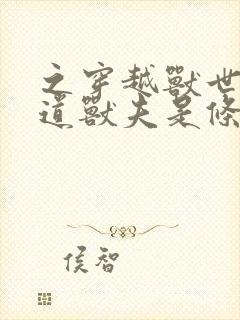 之穿越獸世
道獸夫是條
侯智